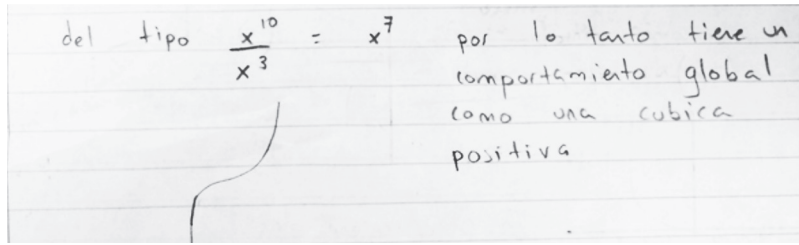 del tipo x^10/x^3 = x^7 por lo tanto tiene un
comportamiento global
como una cubica
positiva